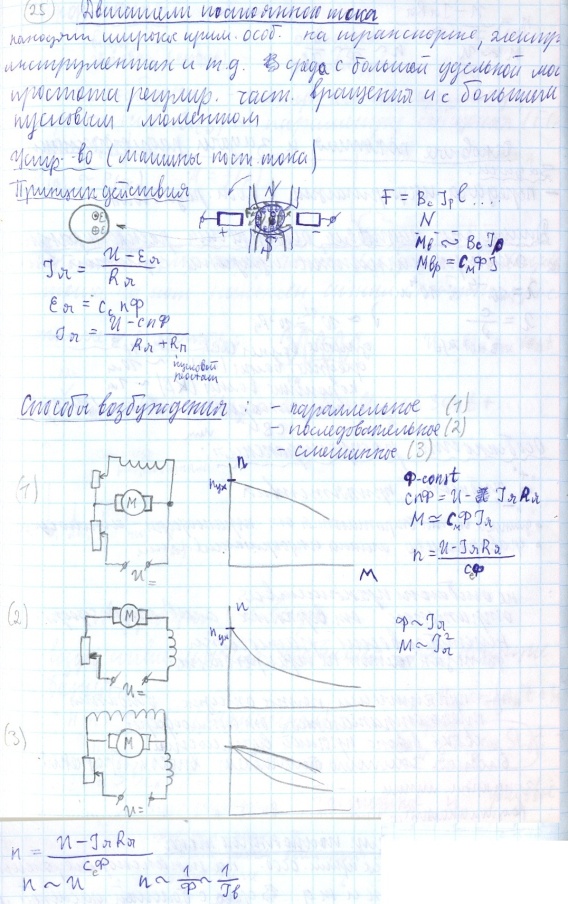 (25) Двигатели постоянного тока
находят широкое прим. особ. на транспорте, электр.
инструментах и т.д. В среда с большой удельной мо
простота регулир. част. вращения и с большим
пусковым моментом
Устр-во (машины пост. тока)
Принцип действия
N
S
+
-
F = Bc Iр l ....
N
Мв ~ Bc Iр
Mвр = CмФI
Iя = (U - Eя) / Rя
Eя = Cс nФ
Iя = (U - CnФ) / (Rя + Rп)
пусковой
реостат
Способы возбуждения : - параллельное (1)
- последовательное (2)
- смешанное (3)
(1)
M
U =
n
nхх
M
Ф-const
CnФ = U - IяRя
M ≃ CмФIя
n = (U - IяRя) / CсФ
(2)
M
U =
n
nхх
Ф ~ Iя
M ~ Iя²
(3)
M
U=
n = (U - IяRя) / CсФ
n ~ U n ~ 1/Ф ~ 1/Iв